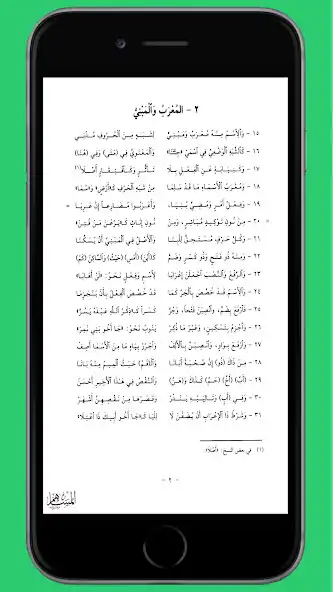 ٢ - المُعْرَبُ وَالْمَبْنِيُّ
١٥ - وَالِاسْمُ مِنْهُ مُعْرَبٌ وَمَبْنِي لِشَبَهٍ مِنَ الْحُرُوفِ مُدْنِي
١٦ - كَالشَّبَهِ الْوَضْعِيِّ فِي اسْمَيْ «جِئْتَنَا» وَالْمَعْنَوِيِّ فِي «مَتَى» وَفِي «هُنَا»
١٧ - وَكَنِيَابَةٍ عَنِ الْفِعْلِ بِلَا تَأَثُّرٍ وَكَافْتِقَارٍ أُصِّلَا(١)
١٨ - وَمُعْرَبُ الْأَسْمَاءِ مَا قَدْ سَلِمَا مِنْ شَبَهِ الْحَرْفِ كَـ«أَرْضٍ» وَ«سُمَا»
١٩ - وَفِعْلُ أَمْرٍ وَمُضِيٍّ بُنِيَا، وَأَعْرَبُوا مُضَارِعًا إِنْ عَرِيَا
٢٠ - مِنْ نُونِ تَوْكِيدٍ مُبَاشِرٍ، وَمِنْ نُونِ إِنَاثٍ كَـ«يَرُعْنَ مَنْ فُتِنْ»
٢١ - وَكُلُّ حَرْفٍ مُسْتَحِقٌّ لِلْبِنَا وَالْأَصْلُ فِي الْمَبْنِيِّ أَنْ يُسَكَّنَا
٢٢ - وَمِنْهُ ذُو فَتْحٍ وَذُو كَسْرٍ وَضَمّْ كَـ«أَيْنَ» «أَمْسِ» «حَيْثُ» وَالسَّاكِنُ «كَمْ»
٢٣ - وَالرَّفْعَ وَالنَّصْبَ اجْعَلَنْ إِعْرَابَا لِاسْمٍ وَفِعْلٍ نَحْوُ: «لَنْ أَهَابَا»
٢٤ - وَالِاسْمُ قَدْ خُصِّصَ بِالْجَرِّ كَمَا قَدْ خُصِّصَ الْفِعْلُ بِأَنْ يَنْجَزِمَا
٢٥ - فَارْفَعْ بِضَمٍّ، وَانْصِبَنْ فَتْحًا، وَجُرّْ كَسْرًا كَـ«ذِكْرُ اللهِ عَبْدَهُ يَسُرّْ»
٢٦ - وَاجْزِمْ بِتَسْكِينٍ، وَغَيْرُ مَا ذُكِرْ يَنُوبُ نَحْوُ: «جَا أَخُو بَنِي نَمِرْ»
٢٧ - وَارْفَعْ بِوَاوٍ، وَانْصِبَنَّ بِالْأَلِفْ وَاجْرُرْ بِيَاءٍ مَا مِنَ الْأَسْمَا أَصِفْ
٢٨ - مِنْ ذَاكَ «ذُو» إِنْ صُحْبَةً أَبَانَا وَ«الْفَمُ» حَيْثُ الْمِيمُ مِنْهُ بَانَا
٢٩ - «أَبٌ» «أَخٌ» «حَمٌ» كَذَاكَ وَ«هَنُ» وَالنَّقْصُ فِي هٰذَا الْأَخِيرِ أَحْسَنُ
٣٠ - وَفِي «أَبٍ» وَتَالِيَيْهِ يَنْدُرُ وَقَصْرُهَا مِنْ نَقْصِهِنَّ أَشْهَرُ
٣١ - وَشَرْطُ ذَا الْإِعْرَابِ أَنْ يُضَفْنَ لَا لِلْيَا كَـ«جَا أَخُو أَبِيكَ ذَا اعْتِلَا»
(١) في بعض النسخ: «أُصِّلَا».
- ٢ -